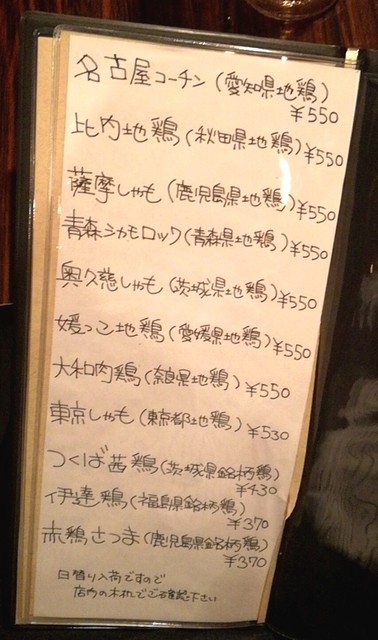 名古屋コーチン(愛知県地鶏)
¥550
比内地鶏(秋田県地鶏)¥550
薩摩しゃも(鹿児島県地鶏)¥550
青森シャモロック(青森県地鶏)¥550
奥久慈しゃも(茨城県地鶏)¥550
媛っこ地鶏(愛媛県地鶏)¥550
大和肉鶏(奈良県地鶏)¥550
東京しゃも(東京都地鶏)¥530
つくば茜鶏(茨城県銘柄鶏)
¥430
伊達鶏(福島県銘柄鶏)
¥370
赤鶏さつま(鹿児島県銘柄鶏)
¥370
日替り入荷ですので
店内の木札でご確認下さい